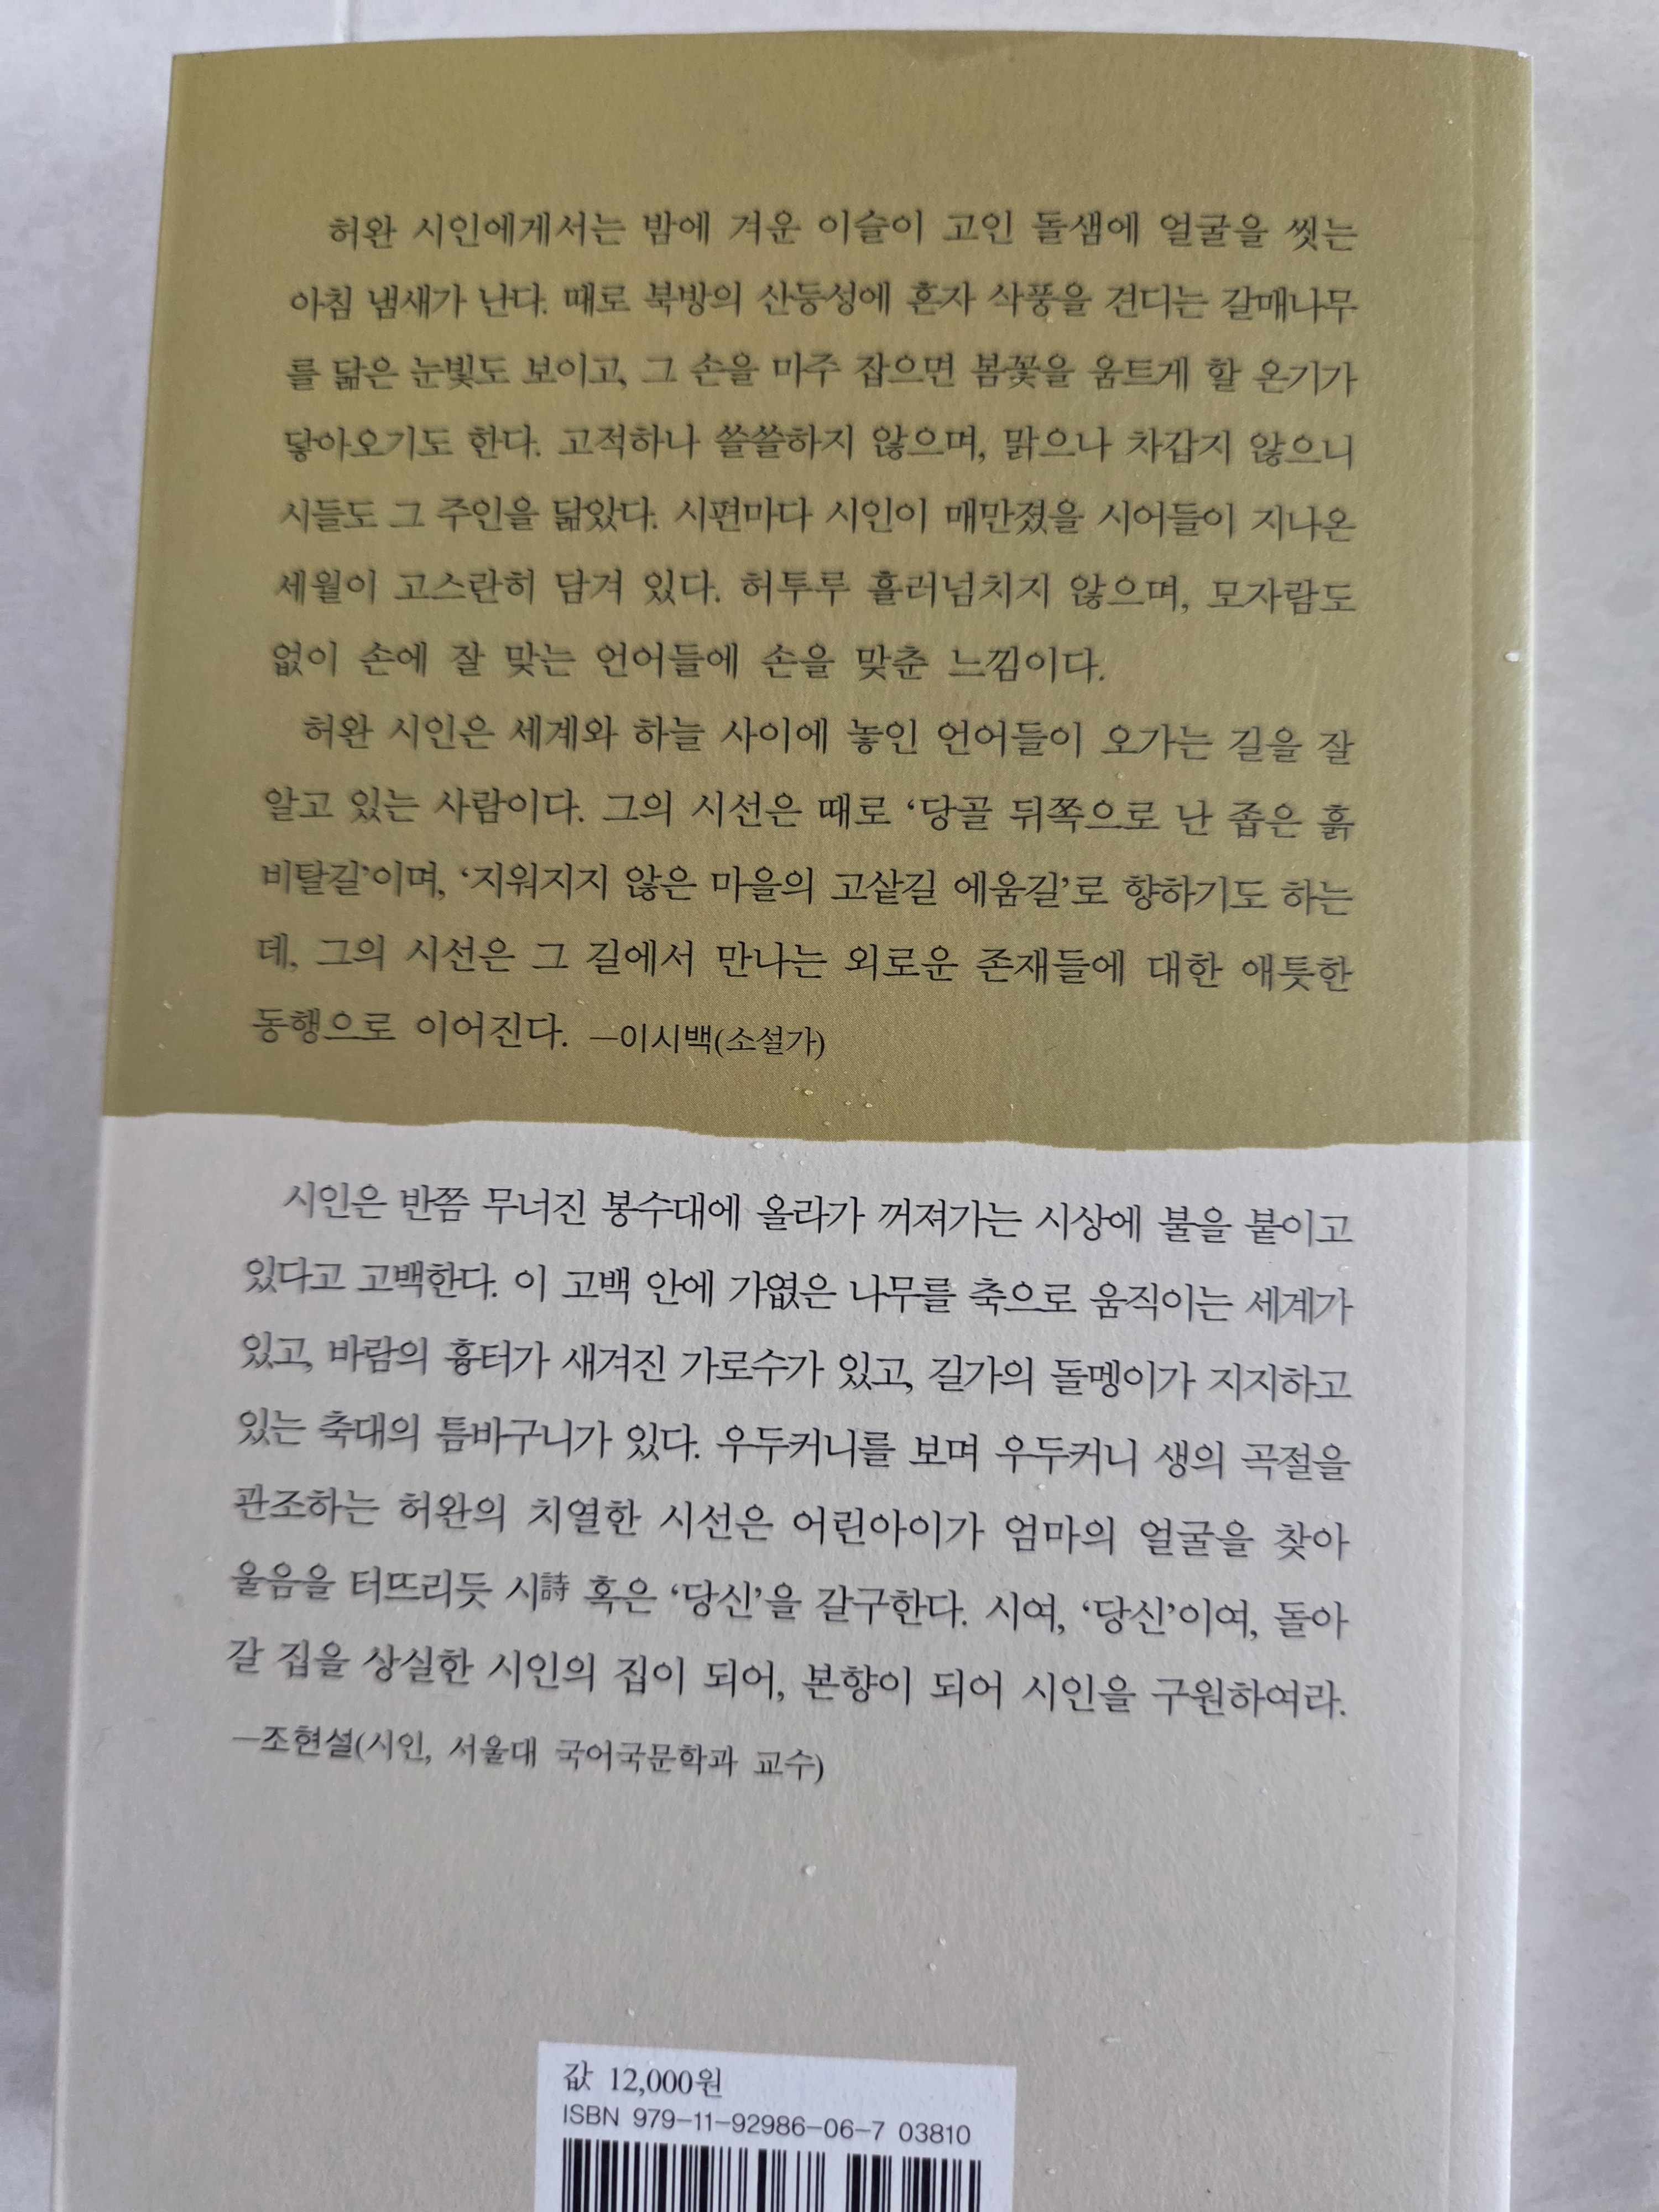 허완 시인에게서는 밤에 겨운 이슬이 고인 돌샘에 얼굴을 씻는
아침 냄새가 난다. 때로 북방의 산등성에 혼자 삭풍을 견디는 갈매나무
를 닮은 눈빛도 보이고, 그 손을 마주 잡으면 봄꽃을 움트게 할 온기가
닿아오기도 한다. 고적하나 쓸쓸하지 않으며, 맑으나 차갑지 않으니
시들도 그 주인을 닮았다. 시편마다 시인이 매만졌을 시어들이 지나온
세월이 고스란히 담겨 있다. 허투루 흘러넘치지 않으며, 모자람도
없이 손에 잘 맞는 언어들에 손을 맞춘 느낌이다.
허완 시인은 세계와 하늘 사이에 놓인 언어들이 오가는 길을 잘
알고 있는 사람이다. 그의 시선은 때로 ‘당골 뒤쪽으로 난 좁은 흙
비탈길’이며, ‘지워지지 않은 마을의 고샅길 에움길’로 향하기도 하는
데, 그의 시선은 그 길에서 만나는 외로운 존재들에 대한 애틋한
동행으로 이어진다. —이시백(소설가)
시인은 반쯤 무너진 봉수대에 올라가 꺼져가는 시상에 불을 붙이고
있다고 고백한다. 이 고백 안에 가엾은 나무를 축으로 움직이는 세계가
있고, 바람의 흉터가 새겨진 가로수가 있고, 길가의 돌멩이가 지지하고
있는 축대의 틈바구니가 있다. 우두커니를 보며 우두커니 생의 곡절을
관조하는 허완의 치열한 시선은 어린아이가 엄마의 얼굴을 찾아
울음을 터뜨리듯 시詩 혹은 ‘당신’을 갈구한다. 시여, ‘당신’이여, 돌아
갈 집을 상실한 시인의 집이 되어, 본향이 되어 시인을 구원하여라.
—조현설(시인, 서울대 국어국문학과 교수)
값 12,000원
ISBN 979-11-92986-06-7 03810